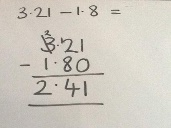 3·21 - 1·8 =
²3·¹21
- 1·80
2·41